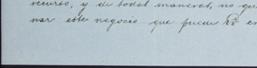 recurso, y de todas maneras, no que
nar este negocio que puede